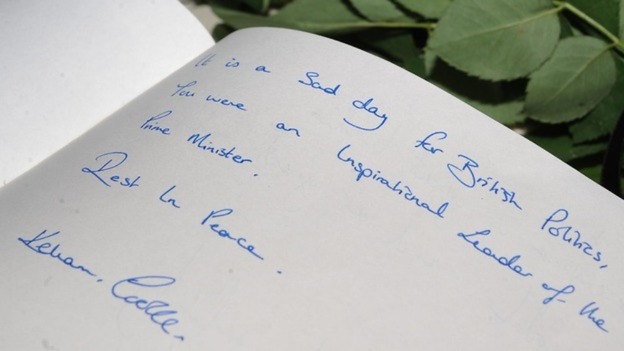 It is a Sad day for British Politics,
You were an Inspirational Leader of the
Prime Minister.
Rest In Peace.